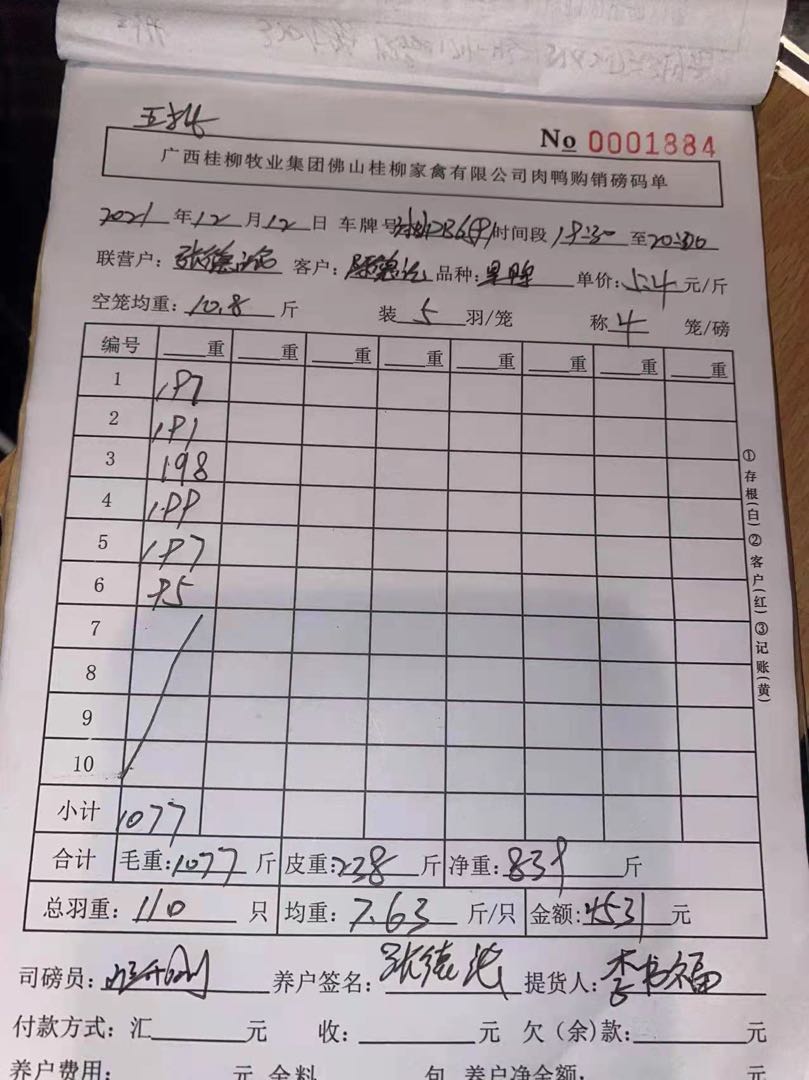 No 0001884
广西桂柳牧业集团佛山桂柳家禽有限公司肉鸭购销磅码单
2021 年 12 月 12 日 车牌号 时间段 19:30 至 20:00
联营户: 张德 客户: 品种: 单价: 5.4 元/斤
空笼均重: 10.8 斤 装 5 羽/笼 称 4 笼/磅
编号 重 重 重 重 重 重 重 重
1 197
2 191
3 198
4 199
5 197
6 95
7
8
9
10
小计 1077
合计 毛重: 1077 斤 皮重: 238 斤 净重: 839 斤
总羽重: 110 只 均重: 7.63 斤/只 金额: 4531 元
司磅员: 养户签名: 张德 提货人: 李书福
付款方式: 汇 元 收: 元 欠(余)款: 元
养户费用: 元 余料 包 养户净金额: 元
①存根(白)②客户(红)③记账(黄)